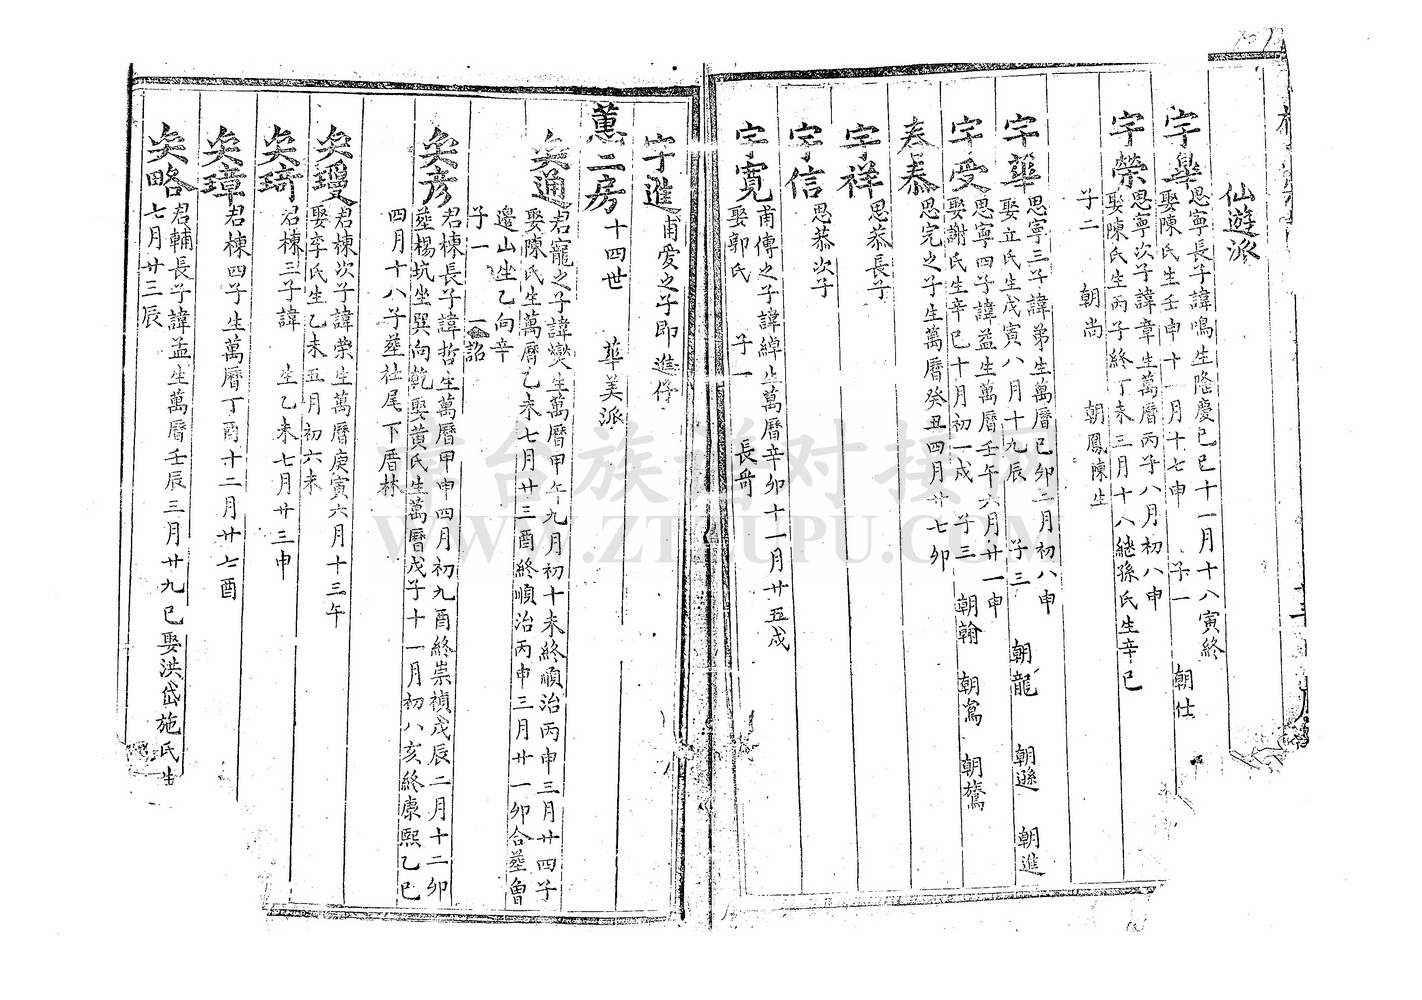 仙遊派
字畢 思寧長子諱鳴生隆慶己巳十一月十八寅終
娶陳氏生壬申十一月十七申 子一 朝仕
字榮 思寧次子諱章生萬曆丙子八月初八申
娶陳氏生丙子終丁未三月十八継孫氏生辛巳
子二 朝尚 朝鳳陳生
字華 思寧三子諱弟生萬曆己卯二月初八申
娶立氏生戊寅八月十九辰 子三 朝龍 朝遜 朝進
字受 思寧四子諱益生萬曆壬午六月廿一申
娶謝氏生辛巳十月初一戌 子三 朝翰 朝寫 朝鶯
泰 思完之子生萬曆癸丑四月廿七卯
字祥 思恭長子
字信 思恭次子
字寬 甫傳之子諱綽生萬曆辛卯十一月廿五戌
娶郭氏 子一 長奇
字進 甫愛之子即進仔
蕙二房 十四世 華美派
奂通 君寵之子諱爕生萬曆甲午九月初十未終順治丙申三月廿四子
娶陳氏生萬曆乙未七月廿三酉終順治丙申三月廿一卯合塟曾
邊山坐乙向辛
子一 一詔
奂彦 君棟長子諱哲生萬曆甲申四月初九酉終崇禎戊辰二月十二卯
塟楊坑坐巽向乾娶黄氏生萬曆戊子十一月初八亥終康熙乙巳
四月十八子塟社尾下厝林
奂璦 君棟次子諱崇生萬曆庚寅六月十三午
娶李氏生乙未五月初六未
奂琦 君棟三子諱 生乙未七月廿三申
奂璋 君棟四子生萬曆丁酉十二月廿七酉
奂略 君輔長子諱孟生萬曆壬辰三月廿九巳娶洪岱施氏生
七月廿三辰
譜台族谱对接网
WWW.ZTZUPU.COM